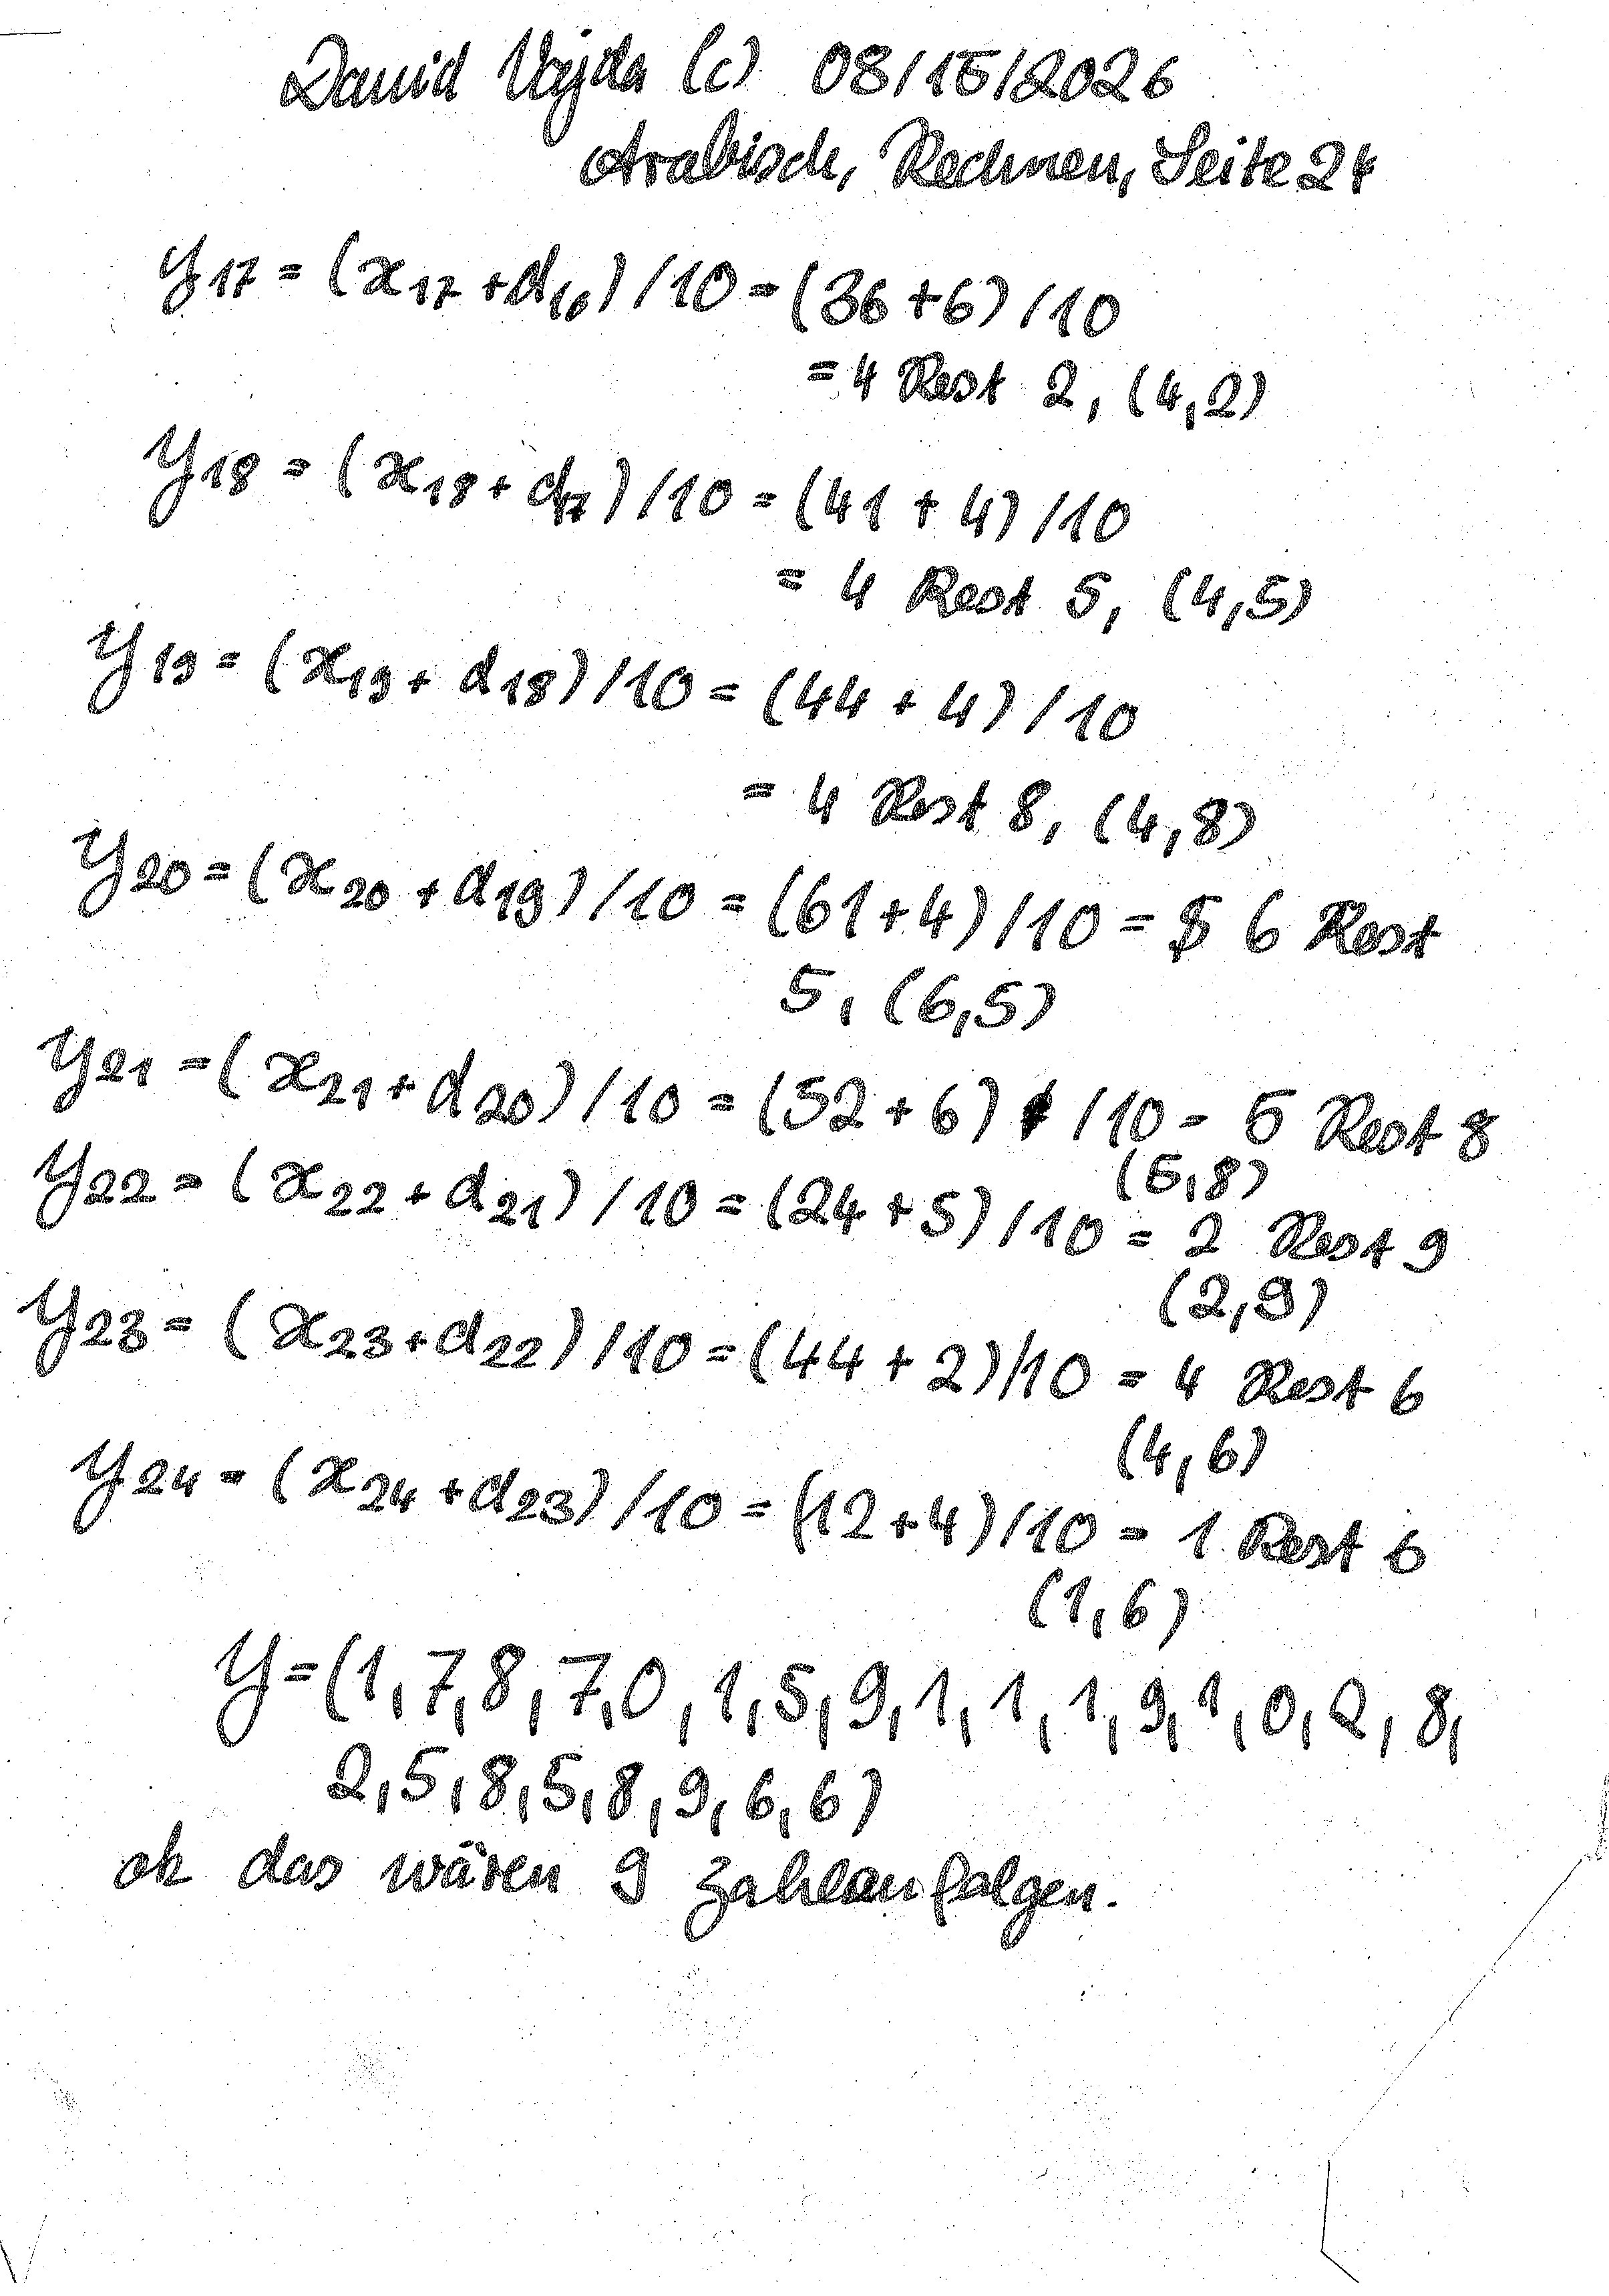 David Vajda (c) 08/15/2026
Arabisch, Rechnen, Seite 24
y17 = (x17 + d16) / 10 = (36 + 6) / 10
= 4 Rest 2, (4,2)
y18 = (x18 + d17) / 10 = (41 + 4) / 10
= 4 Rest 5, (4,5)
y19 = (x19 + d18) / 10 = (44 + 4) / 10
= 4 Rest 8, (4,8)
y20 = (x20 + d19) / 10 = (61 + 4) / 10 = 6 Rest
5, (6,5)
y21 = (x21 + d20) / 10 = (52 + 6) / 10 = 5 Rest 8
(5,8)
y22 = (x22 + d21) / 10 = (24 + 5) / 10 = 2 Rest 9
(2,9)
y23 = (x23 + d22) / 10 = (44 + 2) / 10 = 4 Rest 6
(4,6)
y24 = (x24 + d23) / 10 = (12 + 4) / 10 = 1 Rest 6
(1,6)
y = (1,7,8,7,0,1,5,9,1,1,1,9,1,0,2,8,
2,5,8,5,8,9,6,6)
ok das wären 9 Zahlenfolgen.